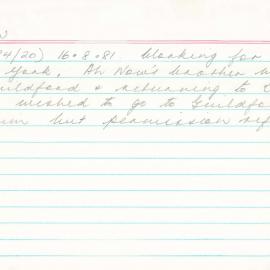 94/20) 16.8.81. Working for
York, Ah Now's brother w
uildford & returning to C
wished to go to Guildfo
but permission ref